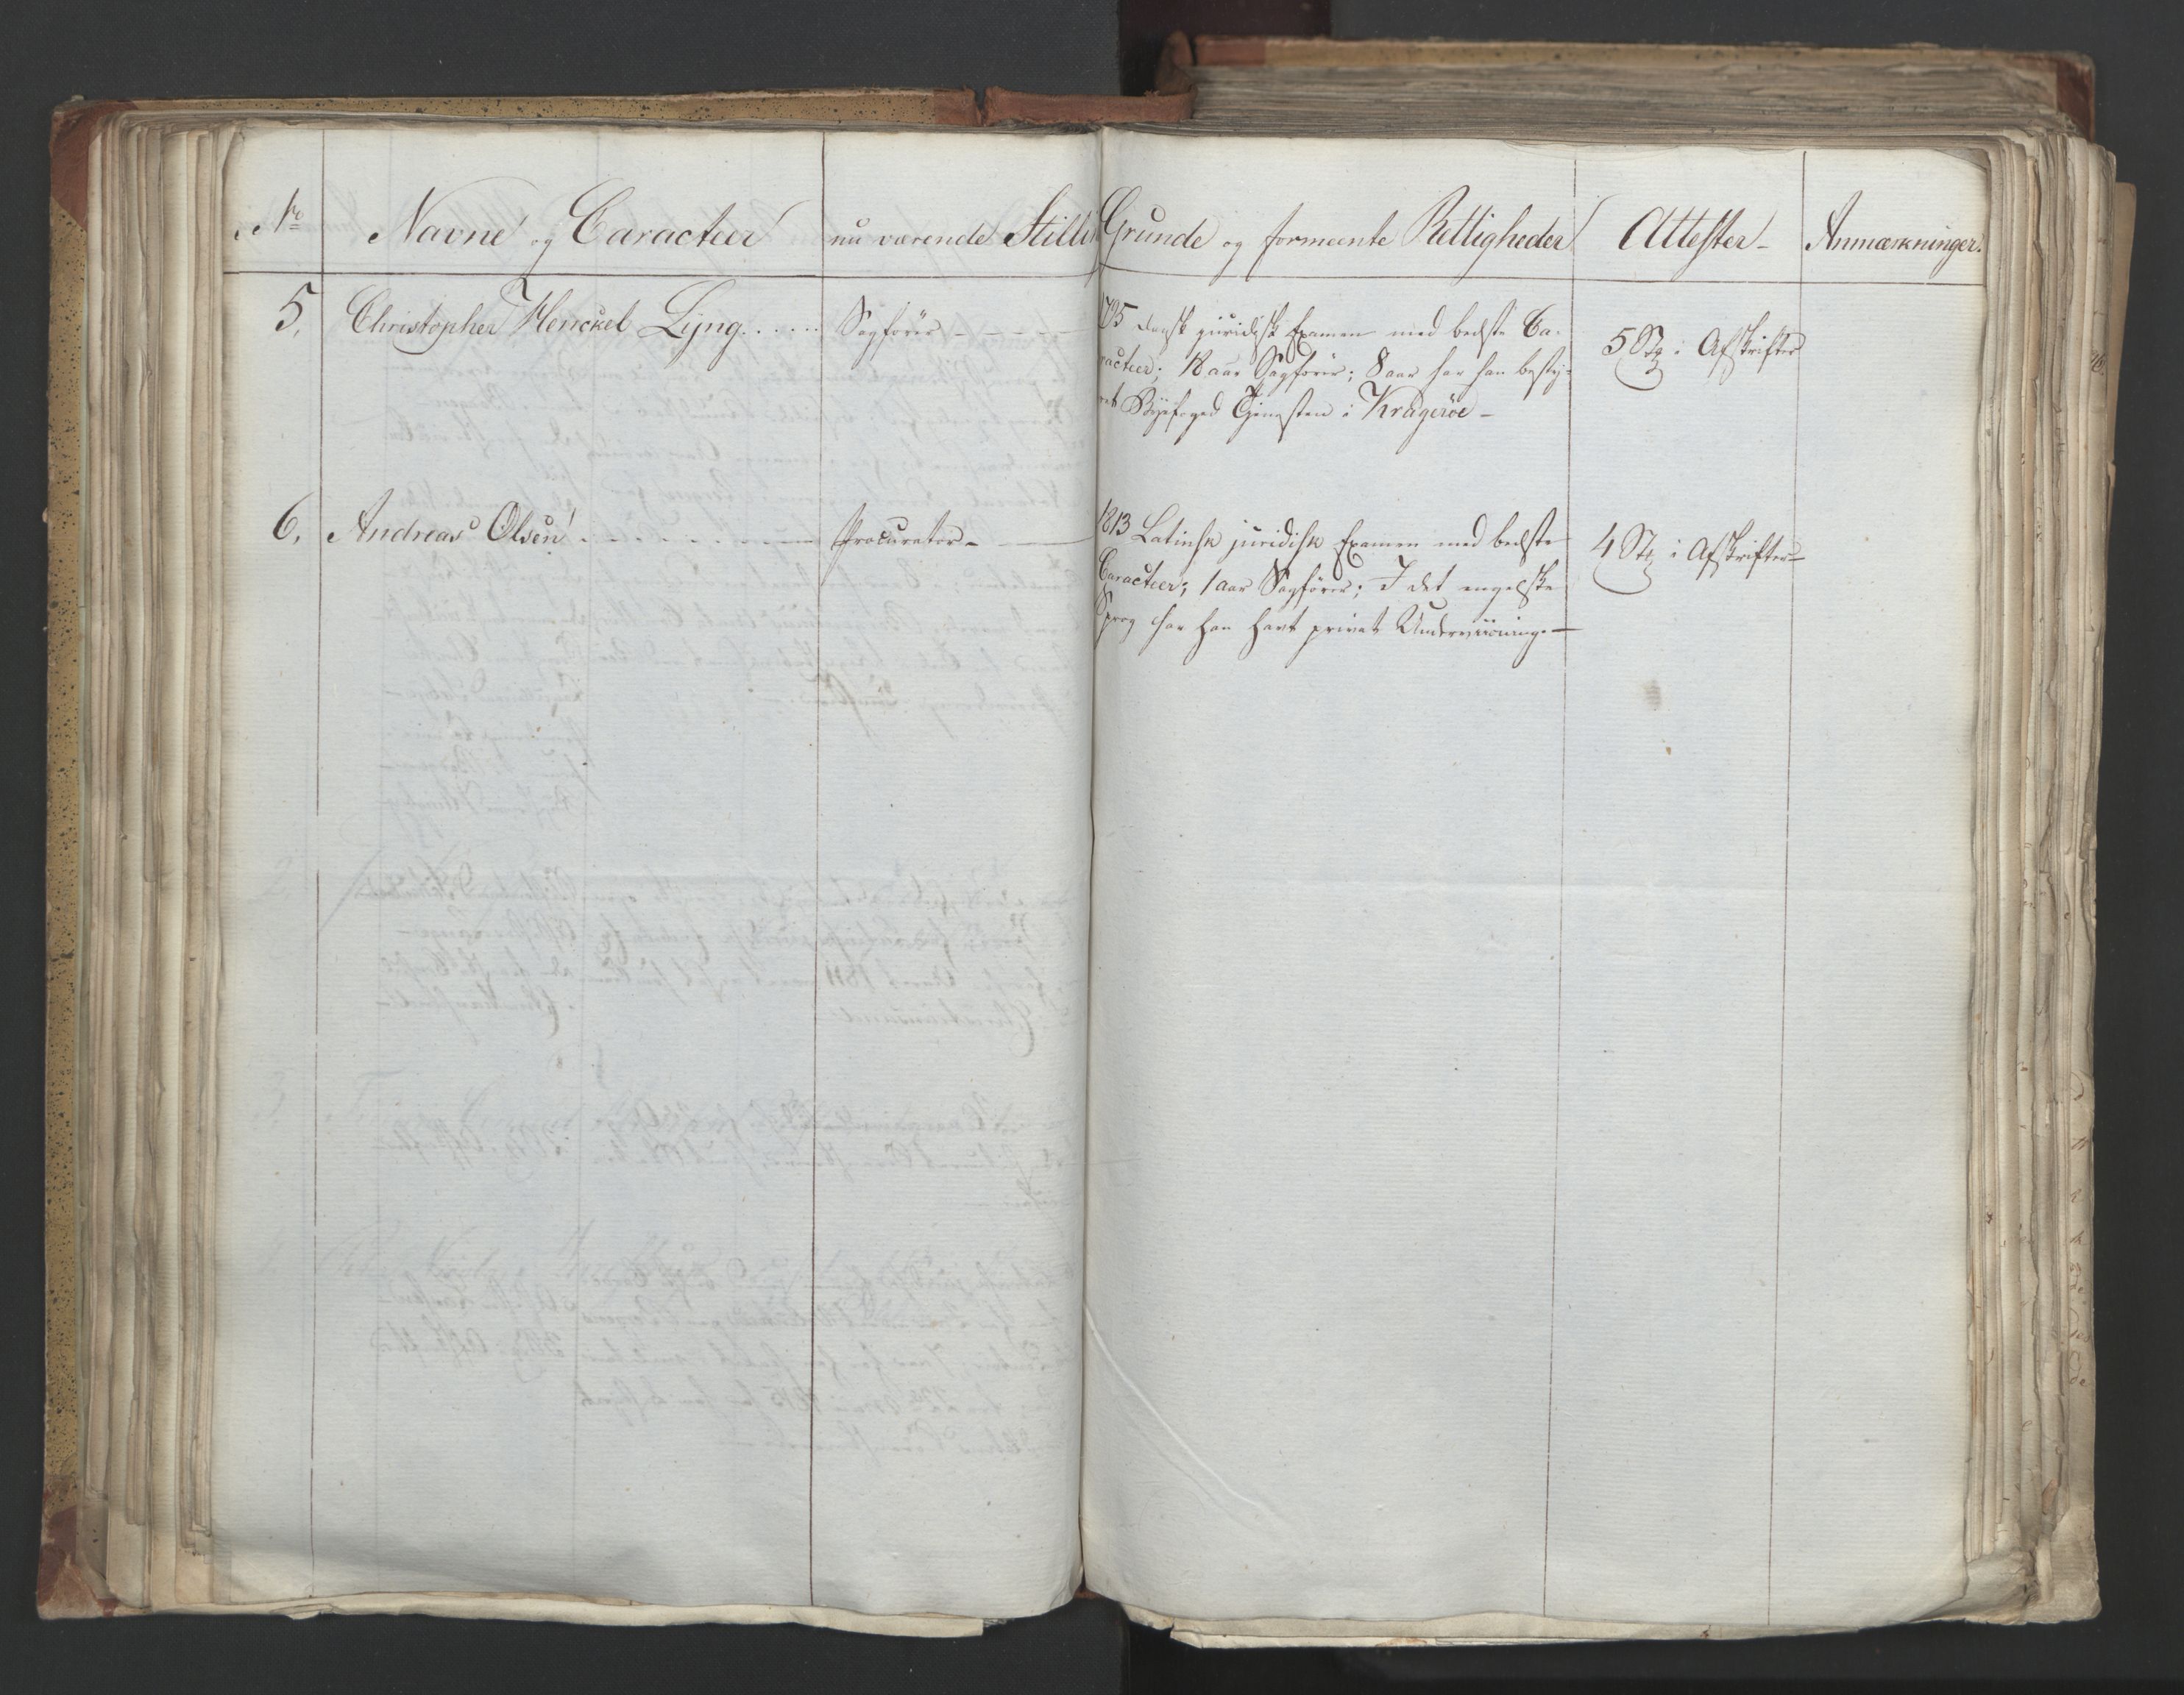 No Navne og Caracteer nu værende Stillin Grunde og formeente Rettigheder Attester - Anmærkninger.
5. Christopher Henckel Lyng...... Sagfører - - - - -
1795 dansk juridisk Examen med bedste Ca-
racteer; 18 aar Sagfører; 8 aar har han besty-
ret Byefoged Tjenesten i Kragerøe -
5 Stk i Afskrifter
6. Andreas Olsen - - - - - - - - Procurator -
1813 Latinsk juridisk Examen med bedste
Caracteer; 1 aar Sagfører; I det engelske
Sprog har han havt privat Underviisning. -
4 Stk i Afskrifter -